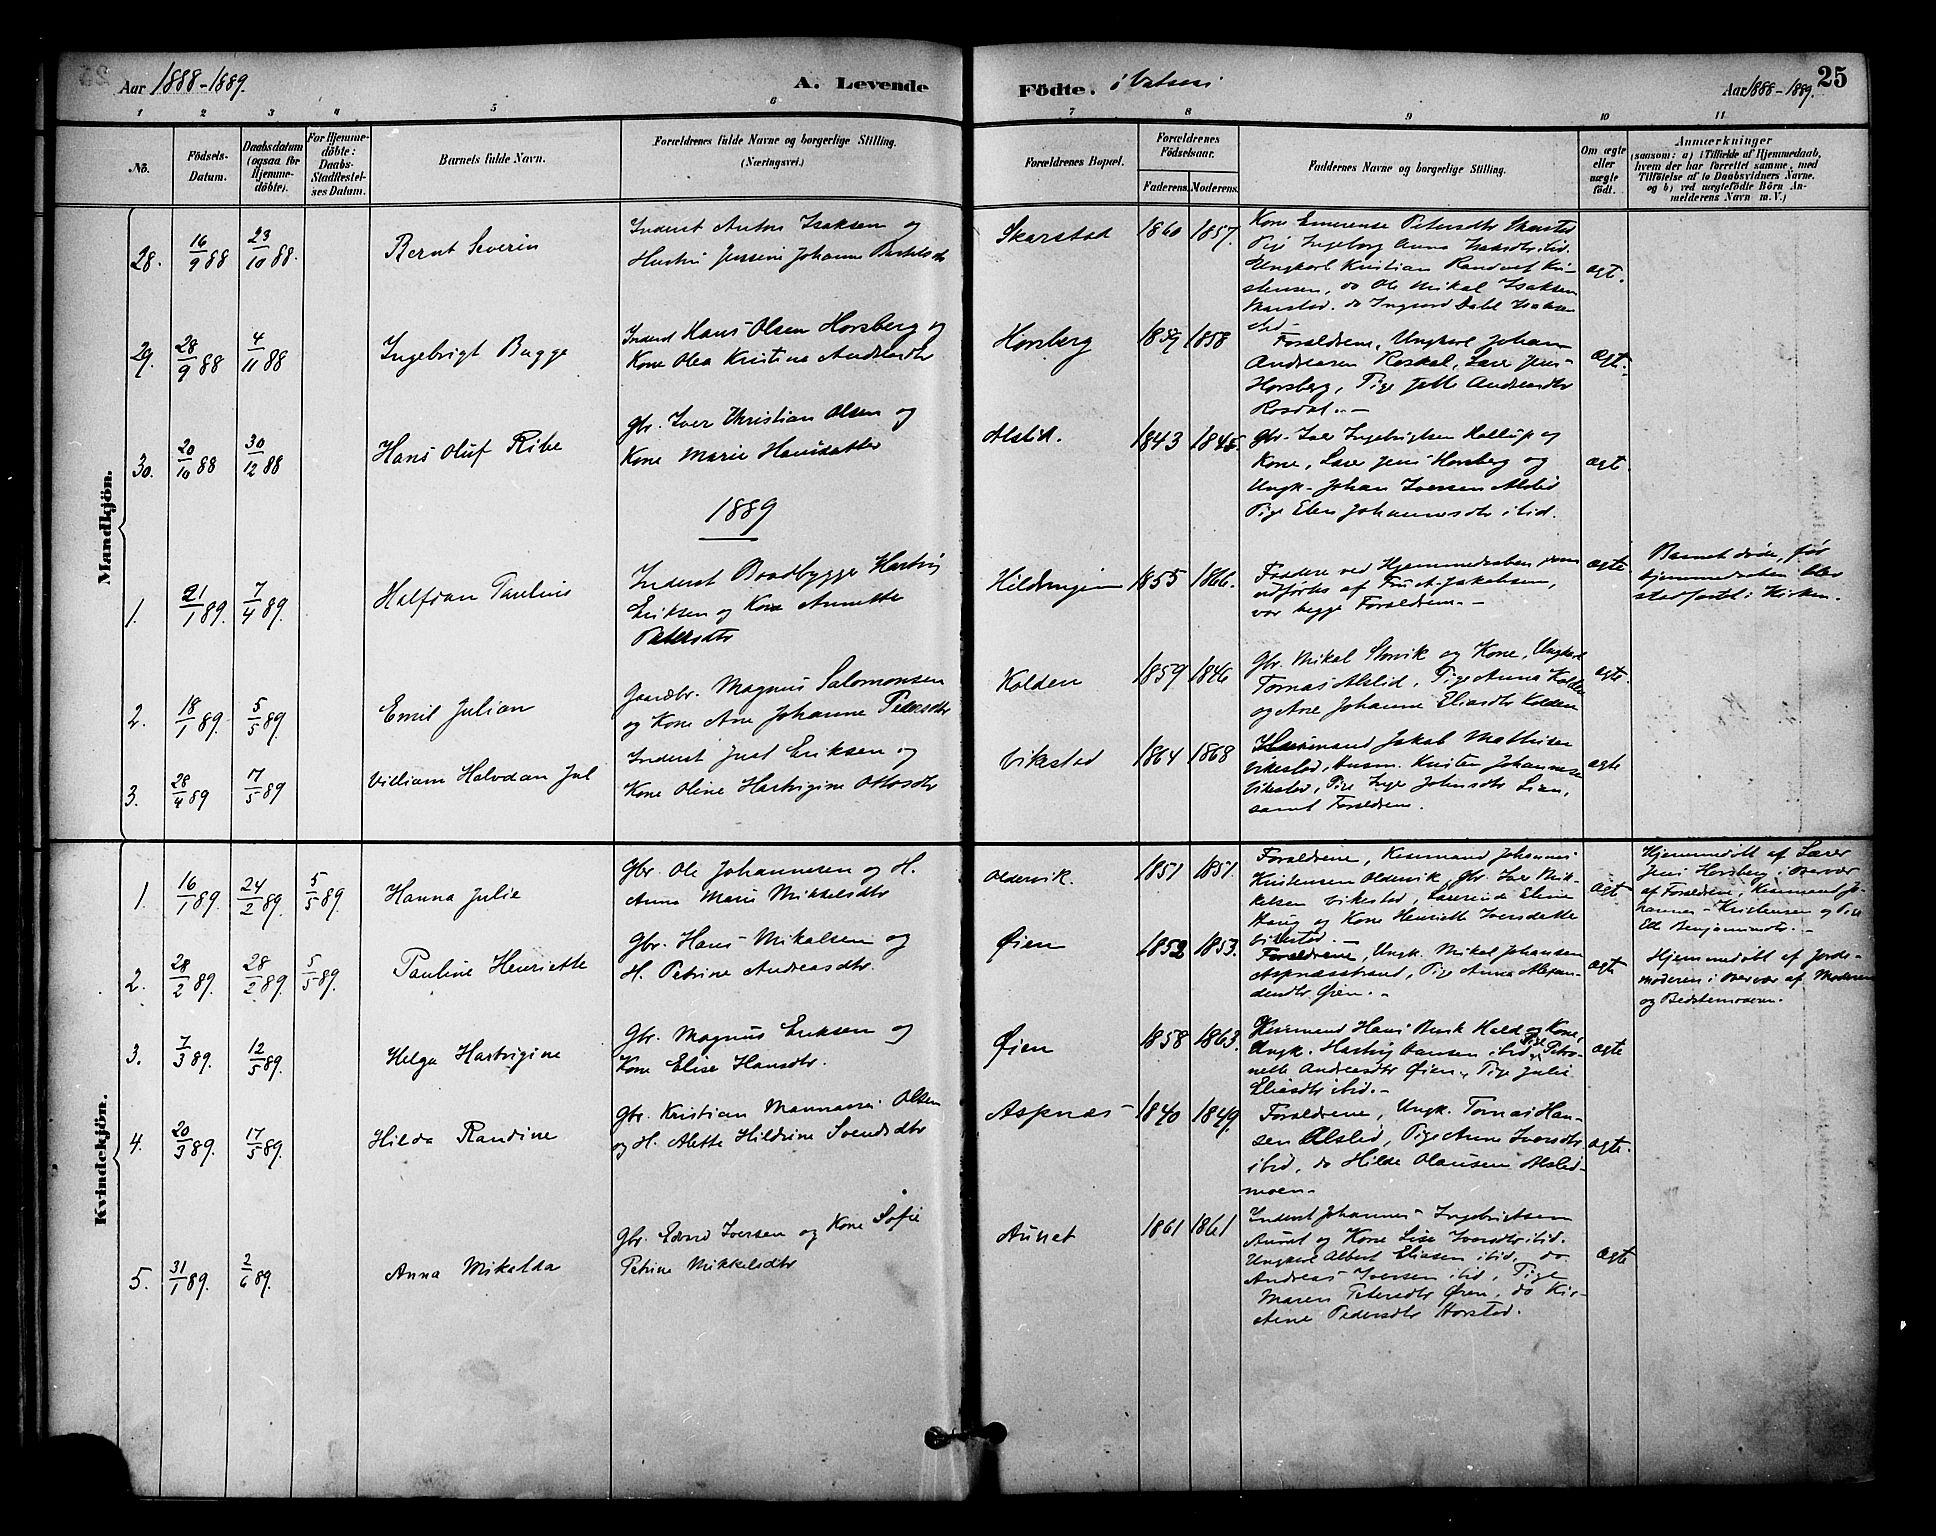 Aar 1888-1889.
A. Levende
Födte. i
Aar 1888-1889.
25
1 2 3 4 5 6 7 8 9 10 11
No.
Födsels-Datum.
Daabsdatum (ogsaa for Hjemme-döbte).
For Hjemme-döbte: Daabs-Stadfæstel-ses Datum.
Barnets fulde Navn.
Forældrenes fulde Navne og borgerlige Stilling. (Næringsvei.)
Forældrenes Bopæl.
Forældrenes Födselsaar.
Faderens. Moderens.
Faddernes Navne og borgerlige Stilling.
Om ægte eller uægte födt.
Anmærkninger
(saasom: a) i Tilfælde af Hjemmedaab, hvem der har forrettet samme, med Tilföielse af to Daabsvidners Navne, og b) ved uægtefödte Börn An-melderens Navn m. V.)
Mandkjön.
28. 16/9 88 23/10 88. Bernt Severin
Inderst Anton Isaksen og
Hustru Jensine Johanna
Skarstad 1860 1857.
Kone Emerense Petersdtr Skarstad
Pige Ingeborg Anna Isaksdtr ibid.
Ungkarl Kristian
do Ole Mikal Isaksen
Skarstad. do Ingvard Dahl Isaksen
ibid
ægt.
29. 28/9 88 4/11 88 Ingebrigt Bugge
Inderst Hans Olsen Horsberg og
Kone Olea Kristina Andreasdtr
Horsberg 1858
Forældrene, Ungkarl Johan
Andreasen Roskal, Lærer Jens
Horsberg, Pige Jette Andreasdtr
ægt.
30. 20/10 88 30/12 88 Hans Oluf Ribe
Gbr. Iver Christian Olsen og
Kone Marie Hansdatter
Alslid. 1843 1845.
Gbr. Iver Ingebrigtsen Kallup og
Kone, Lærer Jens Horsberg og
Ungk. Johan Iversen Alslid
Pige Elen Johannesdtr ibid.
ægt.
1889
1. 21/1 89. 7/4 89. Halfdan Paulius
Inderst Baadbygger Hartvig
Eriksen og Kone Annette
Petersdtr
Hildringen 1855 1866.
Faddere ved Hjemmedaaben som
udførtes af Fru A. Jakobsen,
var begge Forældrene.
ægte
Barnet døde, før
hjemmedaaben blev
stadfæstet i Kirken.
2. 18/1 89. 5/5 89. Emil Julian
Gaardbr. Magnus Salomonsen
og Kone Ane Johanna Petersdtr
Kolden 1859 1846
Gbr. Mikal Storvik og Kone, Ungkarl
Tomas Alslid, Pige Anna Kolden
og Ane Johanna Eliasdtr Kolden
ægte.
3. 28/4 89 17/5 89 Villiam Halvdan Jul
Inderst Just Eriksen og
Kone Oline Hartvigine Ottosdtr
Vikestad 1864 1868
Husmand Jakob Mathisen
Vikestad, Husm. Kristen Johannesen
Vikestad, Pige Inge Johnsdtr Lien,
samt Forældrene.
ægte
Kvindekjön.
1. 16/1 89. 24/2 89. 5/5 89. Hanna Julie
Gbr. Ole Johannesen og H.
Anna Marie Mikkelsdtr
Oldervik. 1851 1851.
Forældrene, Johannes
Kristensen Oldervik, Gbr. Iver Mik-
kelsen Vikestad, Lærerinde Eline
Haug og Kone Henriette Iversdatter
Vikestad.
ægt
Hjemmedøbt af Lærer
Jens Horsberg i Overvær
af Forældrene, Kjøbmand Jo-
hannes Kristensen og Pige
Benjaminsdtr.
2. 28/2 89. 28/2 89. 5/5 89. Pauline Henriette
Gbr. Hans Mikalsen og
H. Petrine Andreasdtr.
Øien 1852 1853.
Forældrene, Ungk. Mikal Johansen
Aspnæsstrand, Pige Anna
Øien.
ægte
Hjemmedøbt af Jorde-
moderen i Overvær af Moderen
og Bedstemoderen.
3. 7/3 89. 12/5 89. Helga Hartvigine
Gbr. Magnus Eriksen og
Kone Elise Hansdtr.
Øien 1858 1863.
Hans Kone,
Ungk. Hartvig Hansen ibid Pige Petro-
nelle Andreasdtr Øien, Pige Julie
Eliasdtr ibid.
ægte
4. 20/3 89. 17/5 89. Hilda Randine
Gbr. Kristian Mannasei Olsen
og H. Alette Hildrine Svendsdtr
Aspnæs 1840 1849.
Forældrene, Ungk. Tomas Han-
sen Alslid, Pige Anne Iversdtr
ibid, do Hilde Olausen Alslid-
moen.
ægte.
5. 31/1 89. 2/6 89. Anna Mikalda
Gbr. Edvard Iversen og Kone Sofie
Petrine Mikkelsdtr
Aunet 1861 1861
Inderst Johannes Ingebrigtsen
Aunet og Kone Lise Iversdtr ibid.
Ungkarl Albert Eliasen ibid, do
Andreas Iversen ibid, Pige
Maren Petersdtr Øien, do Kir-
stine Pedersdtr Horstad.
ægte